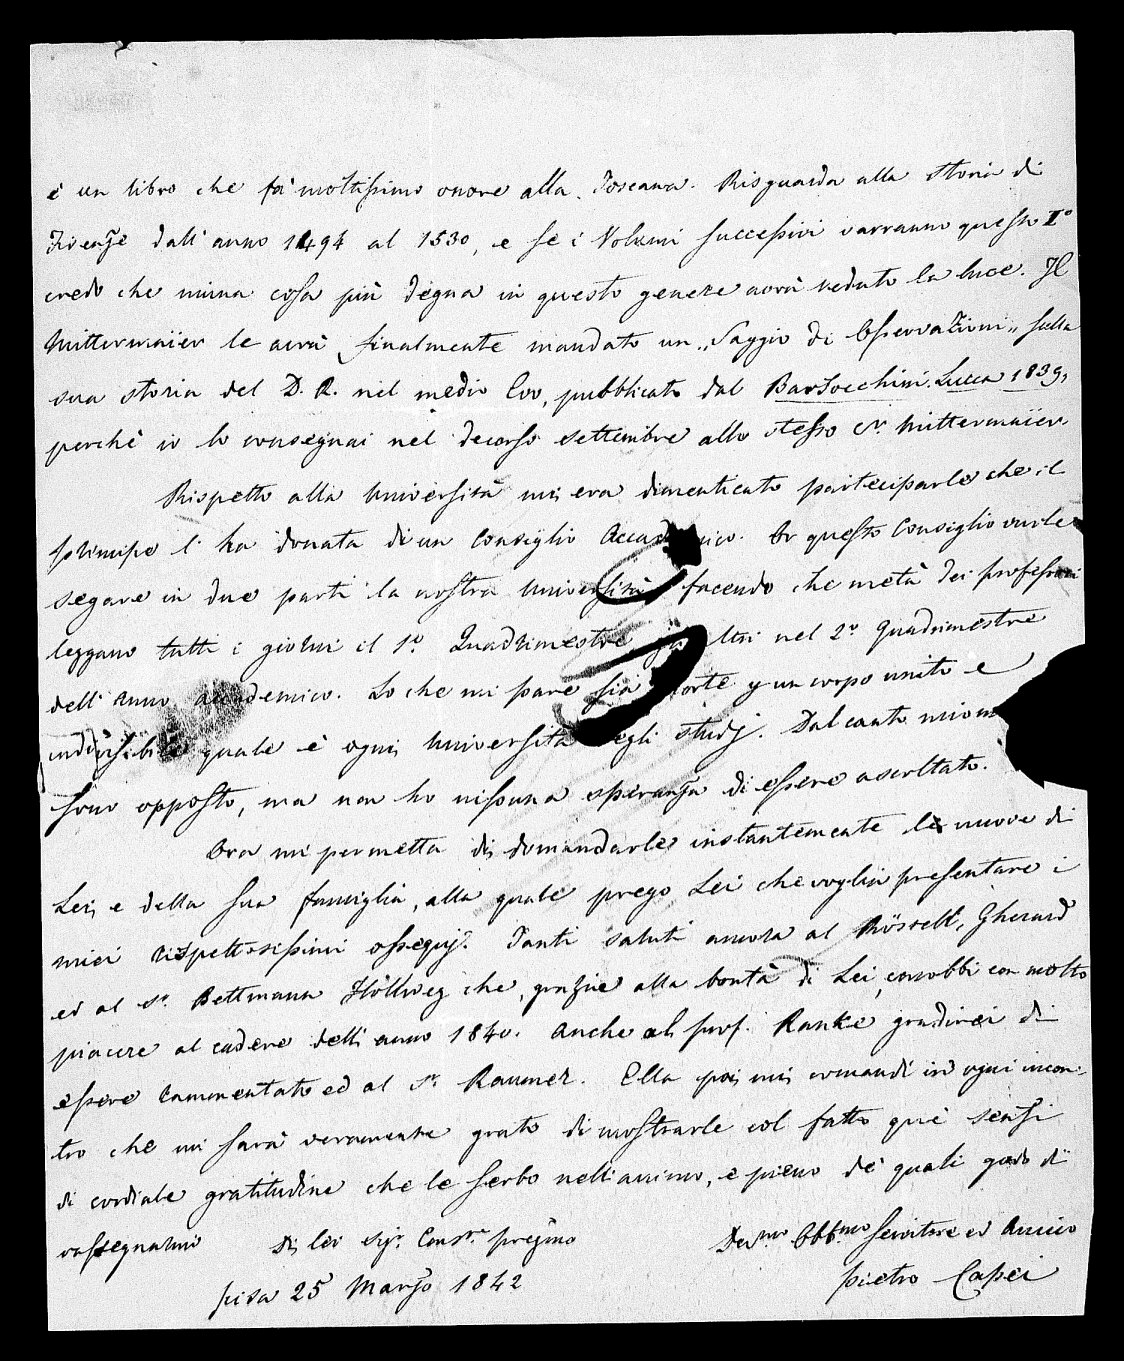 è un libro che fà moltissimo onore alla Toscana. Risguarda alla storia di
Firenze dall'anno 1494 al 1530, e se i Volumi successivi varranno questo I°
credo che niuna cosa più degna in questo genere avrà veduto la luce. Il
Mittermaiier le avrà finalmente mandato un „Saggio di Osservazioni„ sulla
sua storia del D. R. nel medio Evo, pubblicato dal Barsocchini. Lucca 1839,
perchè io lo consegnai nel decorso settembre allo stesso Sr. Mittermaiier.
Rispetto alla Università mi era dimenticato parteciparle che il
principe l'ha donata di un Consiglio Accademico. Or questo Consiglio vuole
segare in due parti la nostra Università facendo che metà dei professori
leggano tutti i giorni il 1° Quadrimestre gli altri nel 2° quadrimestre
dell'anno accademico. Lo che mi pare sia morte p un corpo unito e
indivisibile quale è ogni Università degli studj. Dal canto mio
sono opposto, ma non ho nissuna speranza di essere ascoltato.
Ora mi permetta di domandarle instantemente le nuove di
Lei, e della sua famiglia, alla quale prego Lei che voglia presentare i
miei rispettosissimi ossequj. Tanti saluti ancora al Röstell, Gherard
ed al Sr. Bettmann Hollweg che, grazie alla bontà di Lei, conobbi con molto
piacere al cadere dell'anno 1840. Anche al prof. Ranke gradirei di
essere rammentato ed al Sr. Raumer. Ella poi mi comandi in ogni incon-
tro che mi sarà veramente grato di mostrarle col fatto que' sensi
di cordiale gratitudine che le serbo nell'animo, e pieno de' quali godo di
rassegnarmi Di Lei Sigr. Consre. pregmo Devmo Obbmo Servitore ed Amico
Pisa 25 Marzo 1842 Pietro Capei